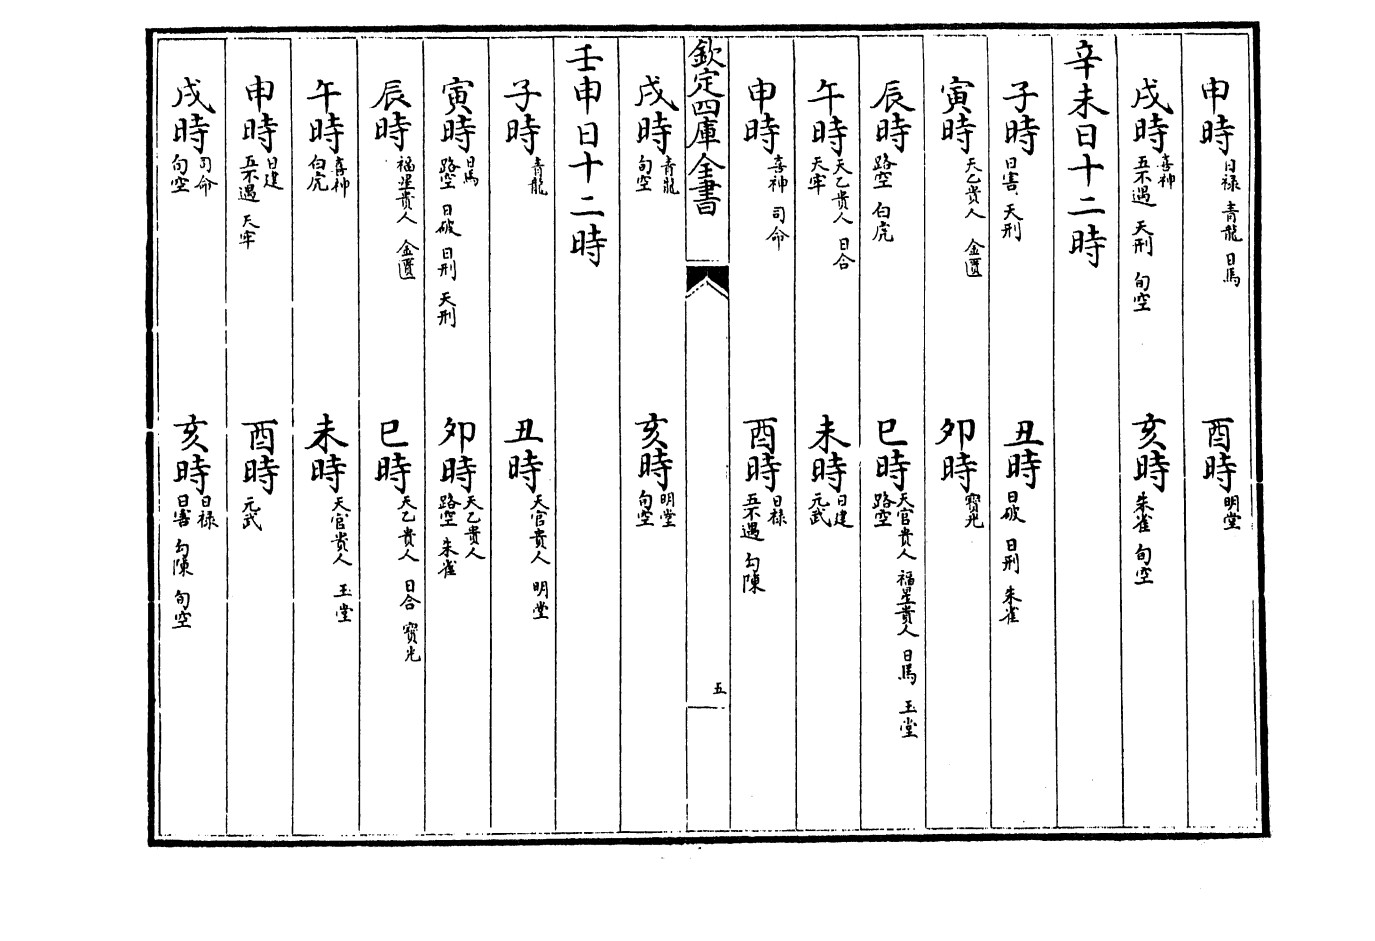 申時 日禄 青龍 日馬
酉時 明堂
戌時 喜神 五不遇 天刑 旬空
亥時 朱雀 旬空
辛未日十二時
子時 日害 天刑
丑時 日破 日刑 朱雀
寅時 天乙貴人 金匱
卯時 寶光
辰時 路空 白虎
巳時 天官貴人 福星貴人 日馬 玉堂 路空
午時 天乙貴人 日合 天牢
未時 日建 元武
申時 喜神 司命
酉時 日禄 五不遇 勾陳
戌時 青龍 旬空
亥時 明堂 旬空
欽定四庫全書
五
壬申日十二時
子時 青龍
丑時 天官貴人 明堂
寅時 日馬 路空 日破 日刑 天刑
卯時 天乙貴人 路空 朱雀
辰時 福星貴人 金匱
巳時 天乙貴人 日合 寶光
午時 喜神 白虎
未時 天官貴人 玉堂
申時 日建 五不遇 天牢
酉時 元武
戌時 司命 旬空
亥時 日禄 日害 勾陳 旬空